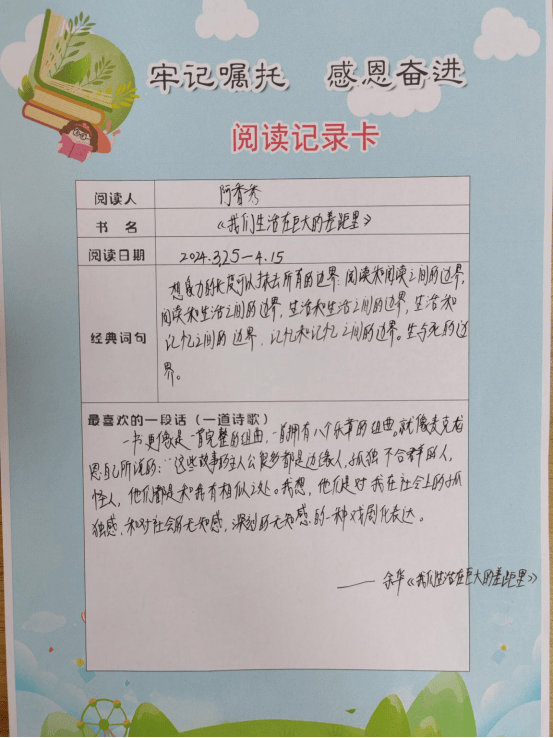 牢记嘱托 感恩奋进
阅读记录卡
阅读人 阿香秀
书名 《我们生活在巨大的差距里》
阅读日期 2024.3.25-4.15
经典词句 想象力的长度可以抹去所有的边界:阅读和阅读之间的边界,
阅读和生活之间的边界,生活和生活之间的边界,生活和
记忆之间的边界,记忆和记忆之间的边界。生与死的边
界。
最喜欢的一段话(一道诗歌)
一书更像是一首完整的组曲,一首拥有八个乐章的组曲。就像麦克尤
恩自己所说的:“这些故事的主人公很多都是边缘人,孤独不合群的人,
怪人,他们都是和我有相似之处。我想,他们是对我在社会上的孤
独感,和对社会的无知感,深刻的无知感的一种戏剧化表达。
——余华《我们生活在巨大的差距里》